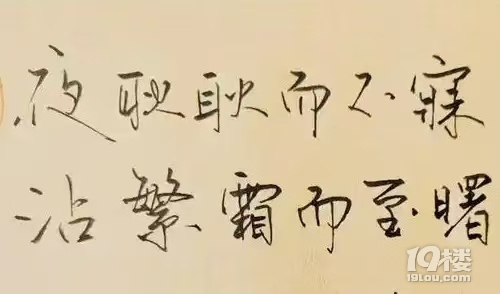 夜耿耿而不寐
沾繁霜而至曙
19楼
19lou.com